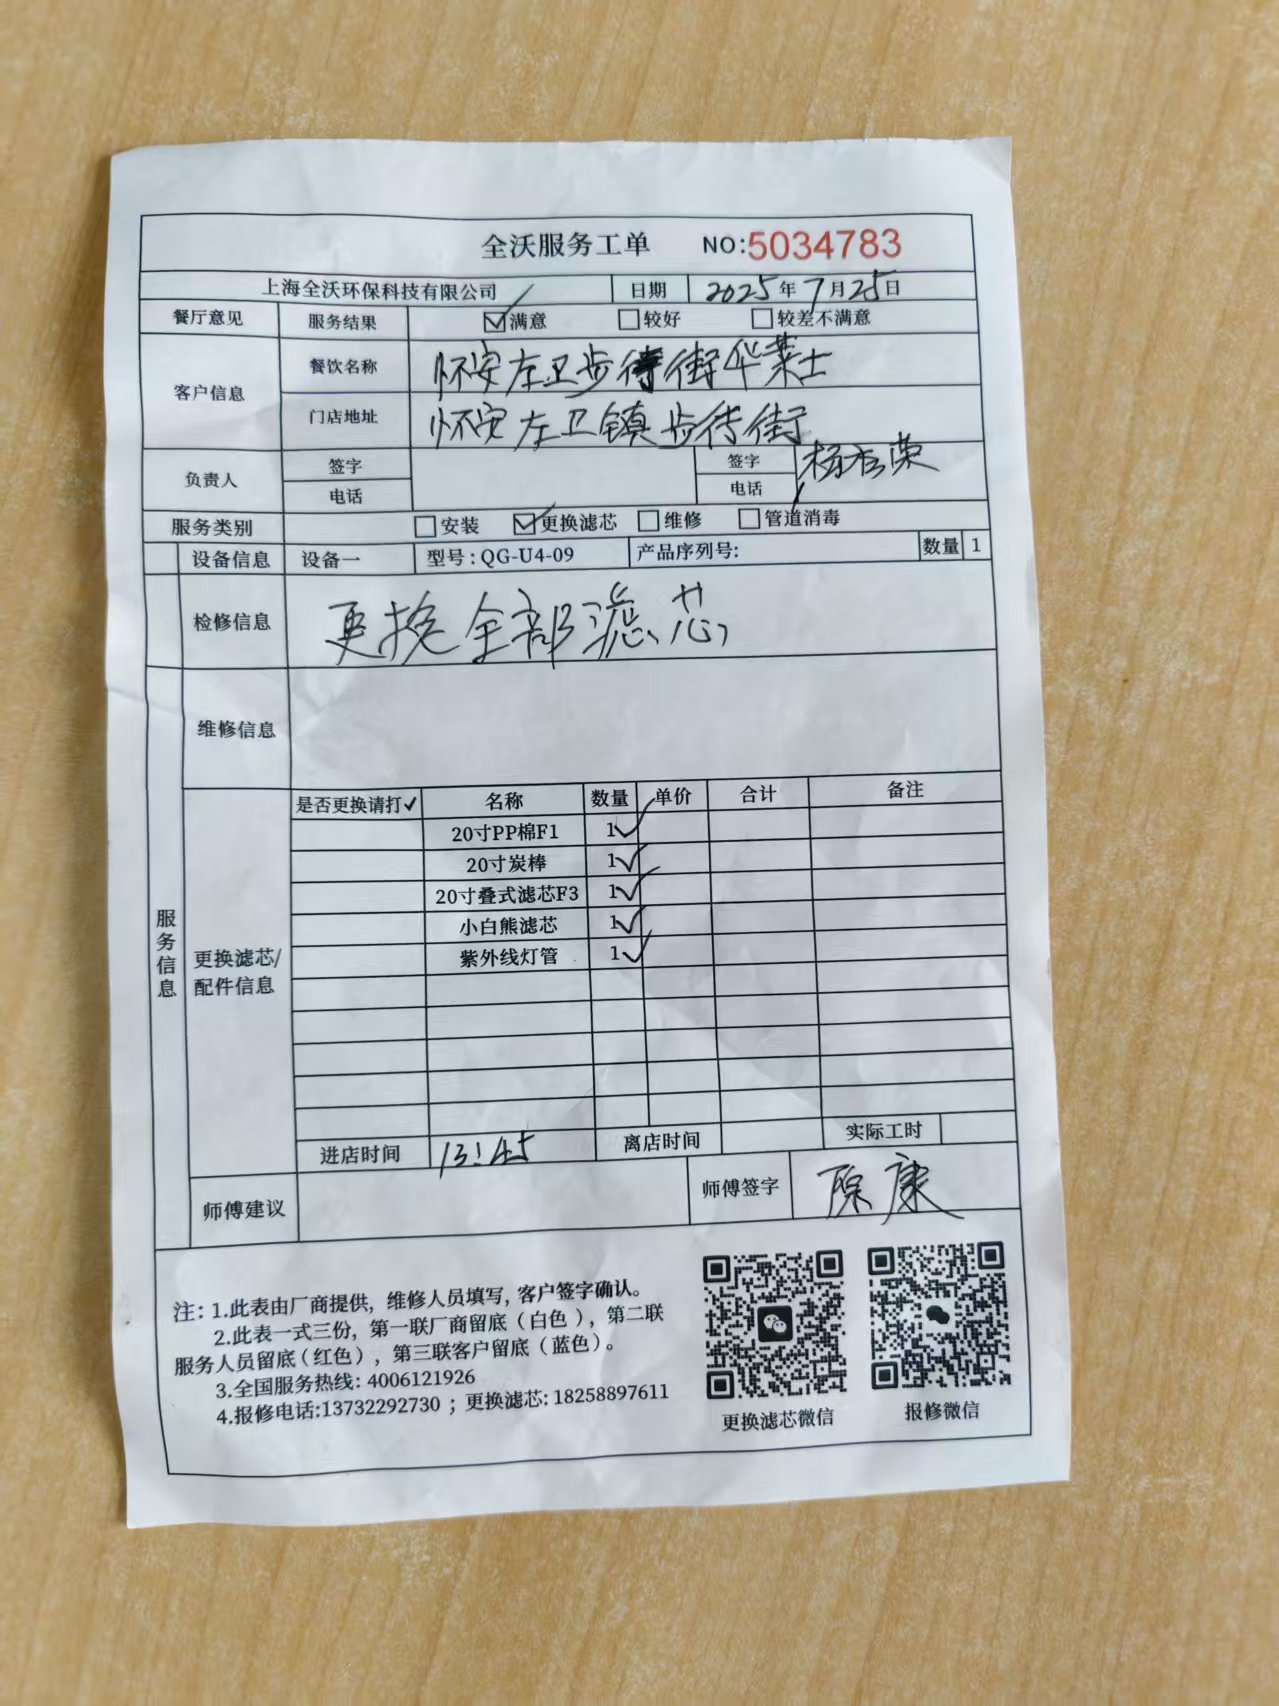 全沃服务工单 NO:5034783
上海全沃环保科技有限公司 日期 2025年7月25日
餐厅意见 服务结果 ☑满意 ☐较好 ☐较差不满意
客户信息 餐饮名称 怀安左卫步行街华莱士
门店地址 怀安左卫镇步行街
负责人 签字 签字 杨
电话 电话
服务类别 ☐安装 ☑更换滤芯 ☐维修 ☐管道消毒
设备信息 设备一 型号:QG-U4-09 产品序列号: 数量 1
检修信息 更换全部滤芯
维修信息
服务信息
更换滤芯/配件信息
是否更换请打✓ 名称 数量 单价 合计 备注
20寸PP棉F1 1✓
20寸炭棒 1✓
20寸叠式滤芯F3 1✓
小白熊滤芯 1✓
紫外线灯管 1✓
进店时间 13:45 离店时间 实际工时
师傅建议 师傅签字 康
注: 1.此表由厂商提供, 维修人员填写, 客户签字确认。
2.此表一式三份, 第一联厂商留底(白色), 第二联
服务人员留底(红色), 第三联客户留底(蓝色)。
3.全国服务热线: 4006121926
4.报修电话:13732292730 ; 更换滤芯: 18258897611
更换滤芯微信 报修微信